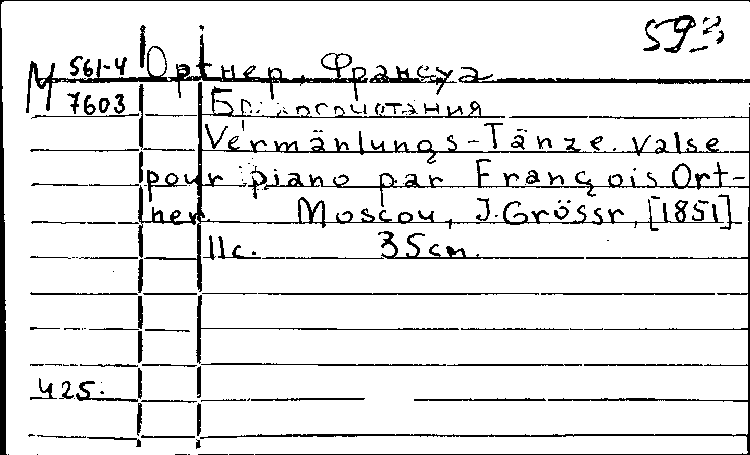 593
М 561-4 Ортнер, Франсуа
7603 Бракосочетания
Vermänlungs-Tänze. valse
pour piano par François Ort-
ner. Moscou, J. Grössr, [1851]
11с. 35см.
425.